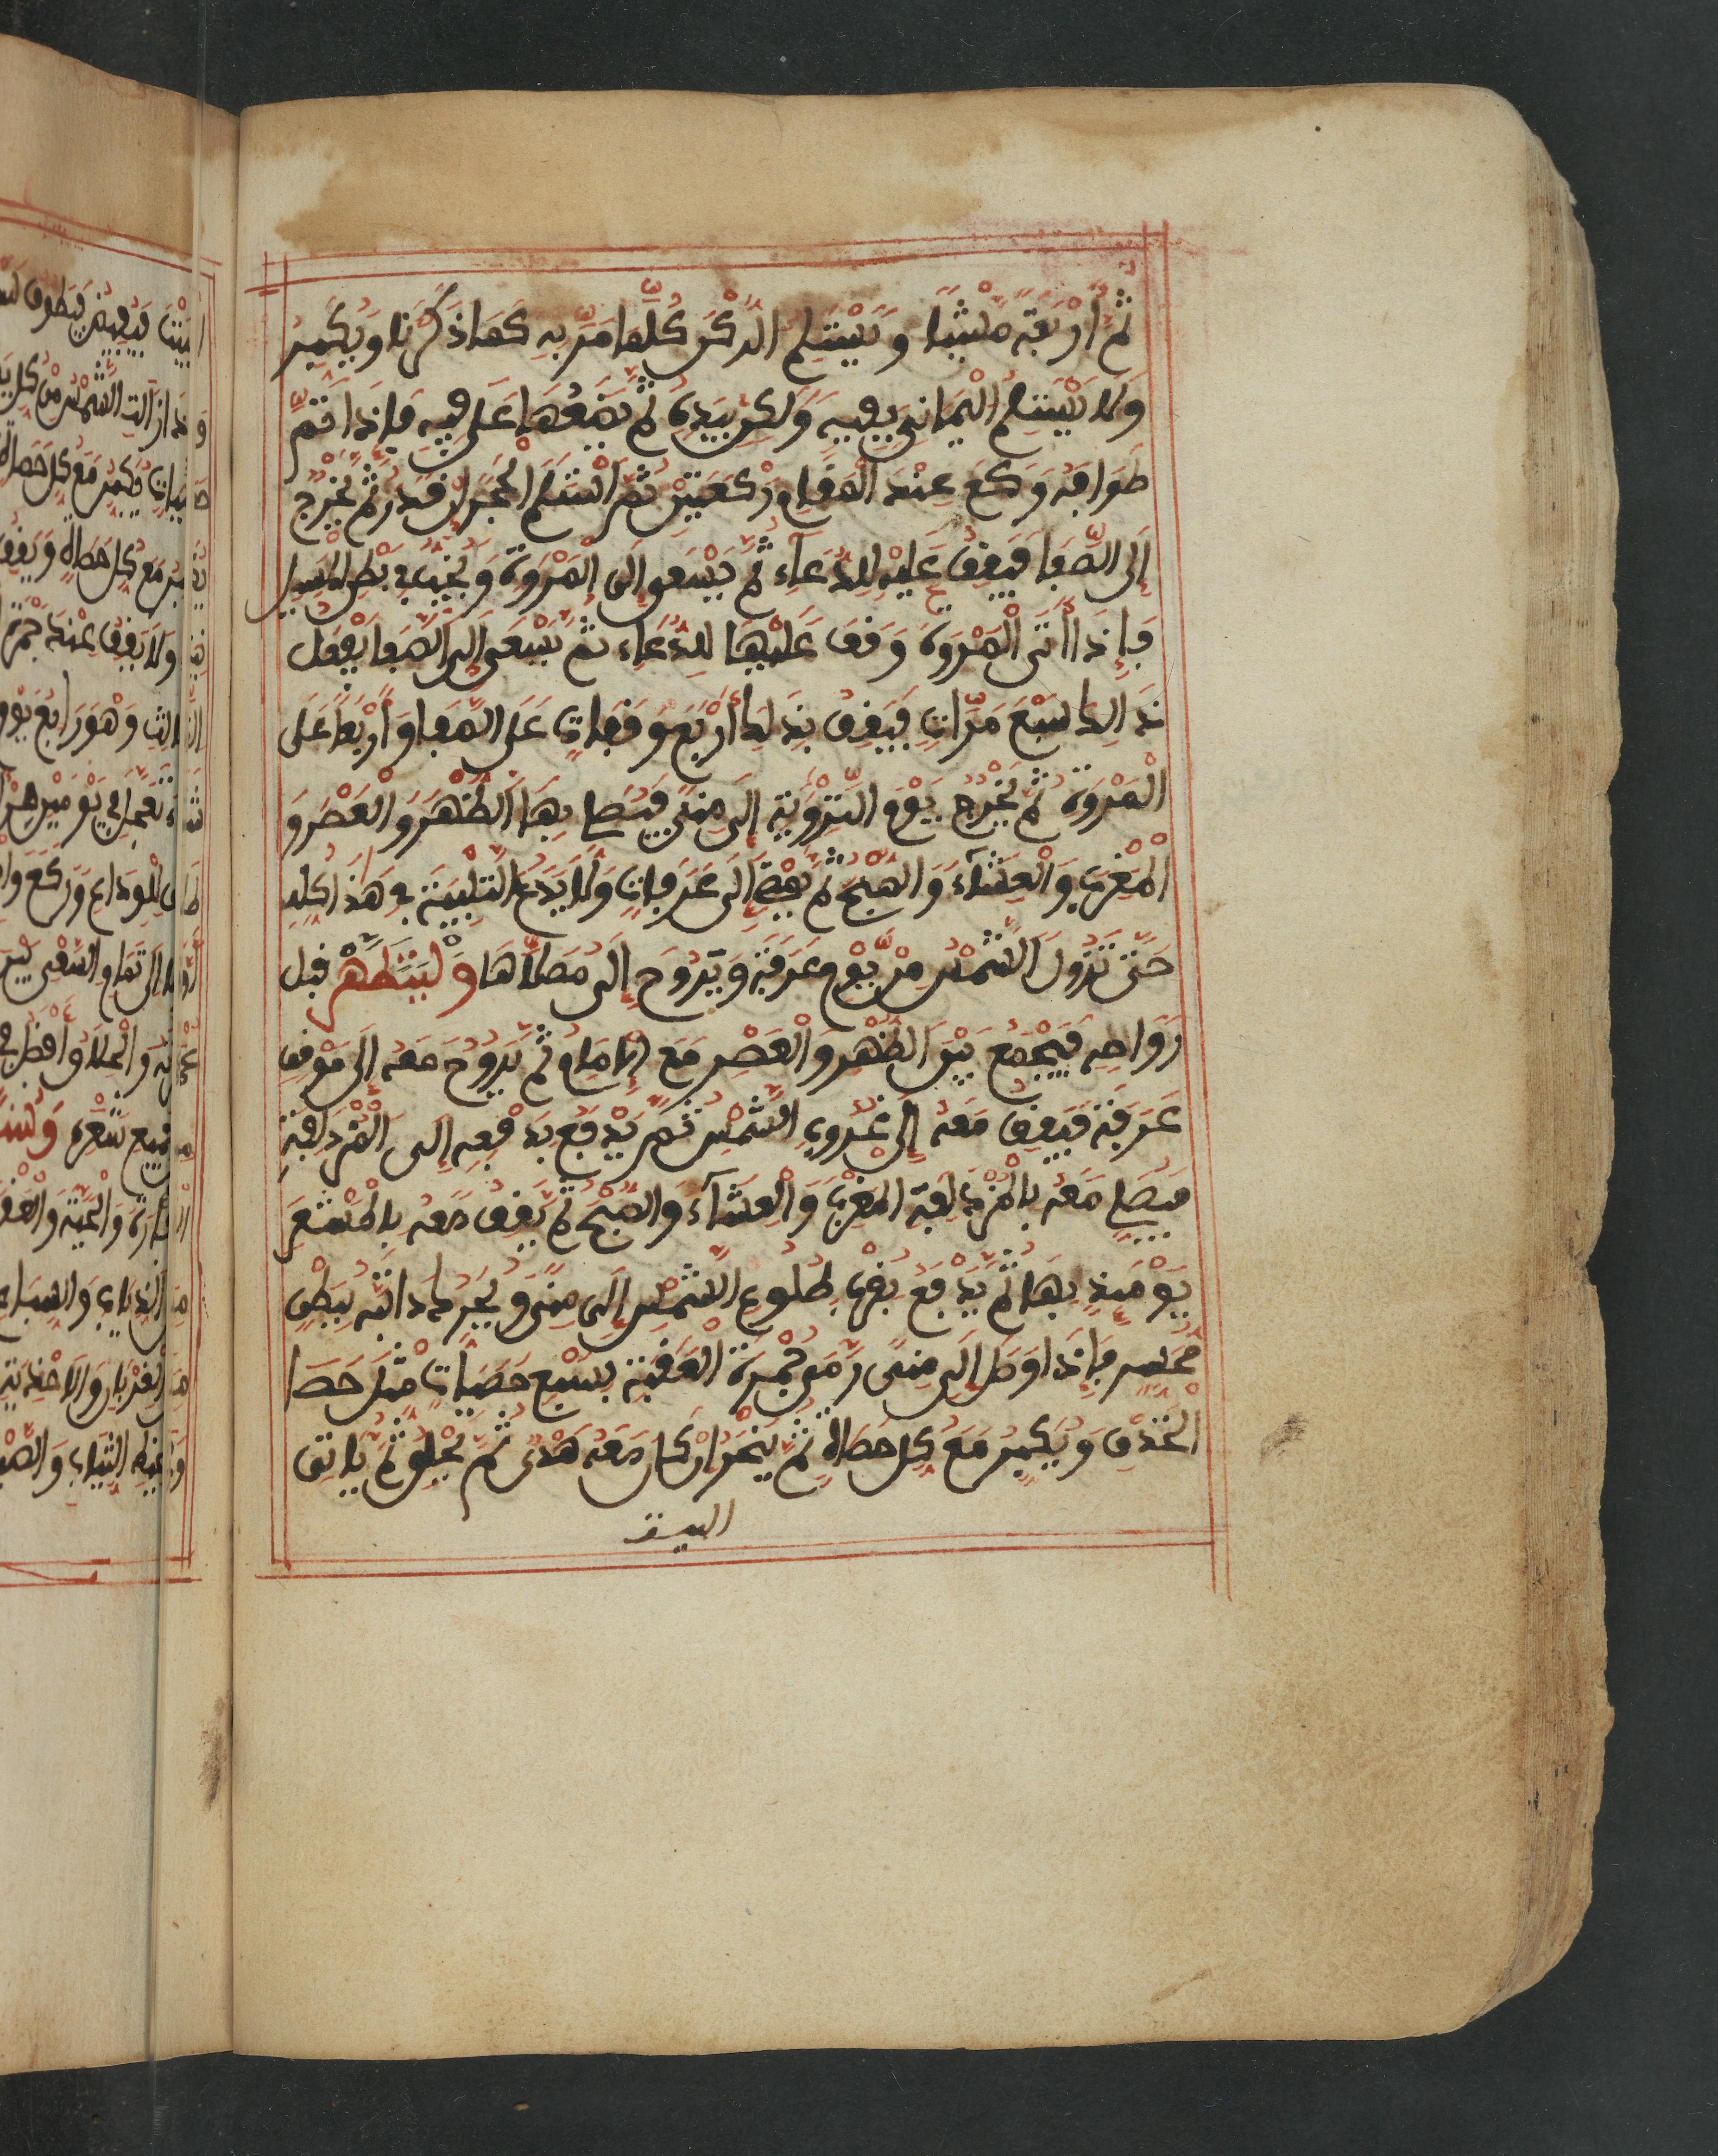 ثم أربعة مشيا ويستلم الركن كلما مر به كما ذكرنا ويكبر
ولا يستلم اليماني بفيه ولكن بيده ثم يضعها على فيه فإذا تم
طوافه ركع عند المقام ركعتين ثم استلم الحجر إن قدر ثم يخرج
إلى الصفا فيقف عليه للدعاء ثم يسعى إلى المروة ويخب في بطن المسيل
فإذا أتى المروة وقف عليها للدعاء ثم يسعى إلى الصفا يفعل
ذالك سبع مرات فيقف بذلك أربع وقفات على الصفا وأربعا على
المروة ثم يخرج يوم التروية إلى منى فيصلي بها الظهر والعصر و
المغرب والعشاء والصبح ثم يمضي إلى عرفات ولا يدع التلبية في هذا كله
حتى تزول الشمس من يوم عرفة ويروح إلى مصلاها وليتطهر قبل
رواحه فيجمع بين الظهر والعصر مع الإمام ثم يروح معه إلى موقف
عرفة فيقف معه إلى غروب الشمس ثم يدفع بدفعه إلى المزدلفة
فيصلي معه بالمزدلفة المغرب والعشاء والصبح ثم يقف معه بالمشعر
يومئذ بها ثم يدفع بقرب طلوع الشمس إلى منى ويحرك دابته ببطن
محسر فإذا وصل إلى منى رمى جمرة العقبة بسبع حصيات مثل حصا
الخذف ويكبر مع كل حصاة ثم ينحر إن كان معه هدي ثم يحلق ثم ياتي
البيت